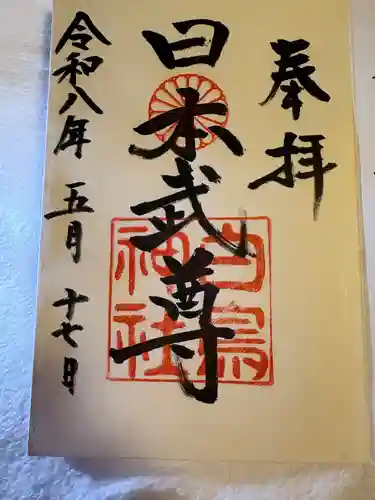 奉拝
日本武尊
白鳥神社
令和八年 五月 十七日